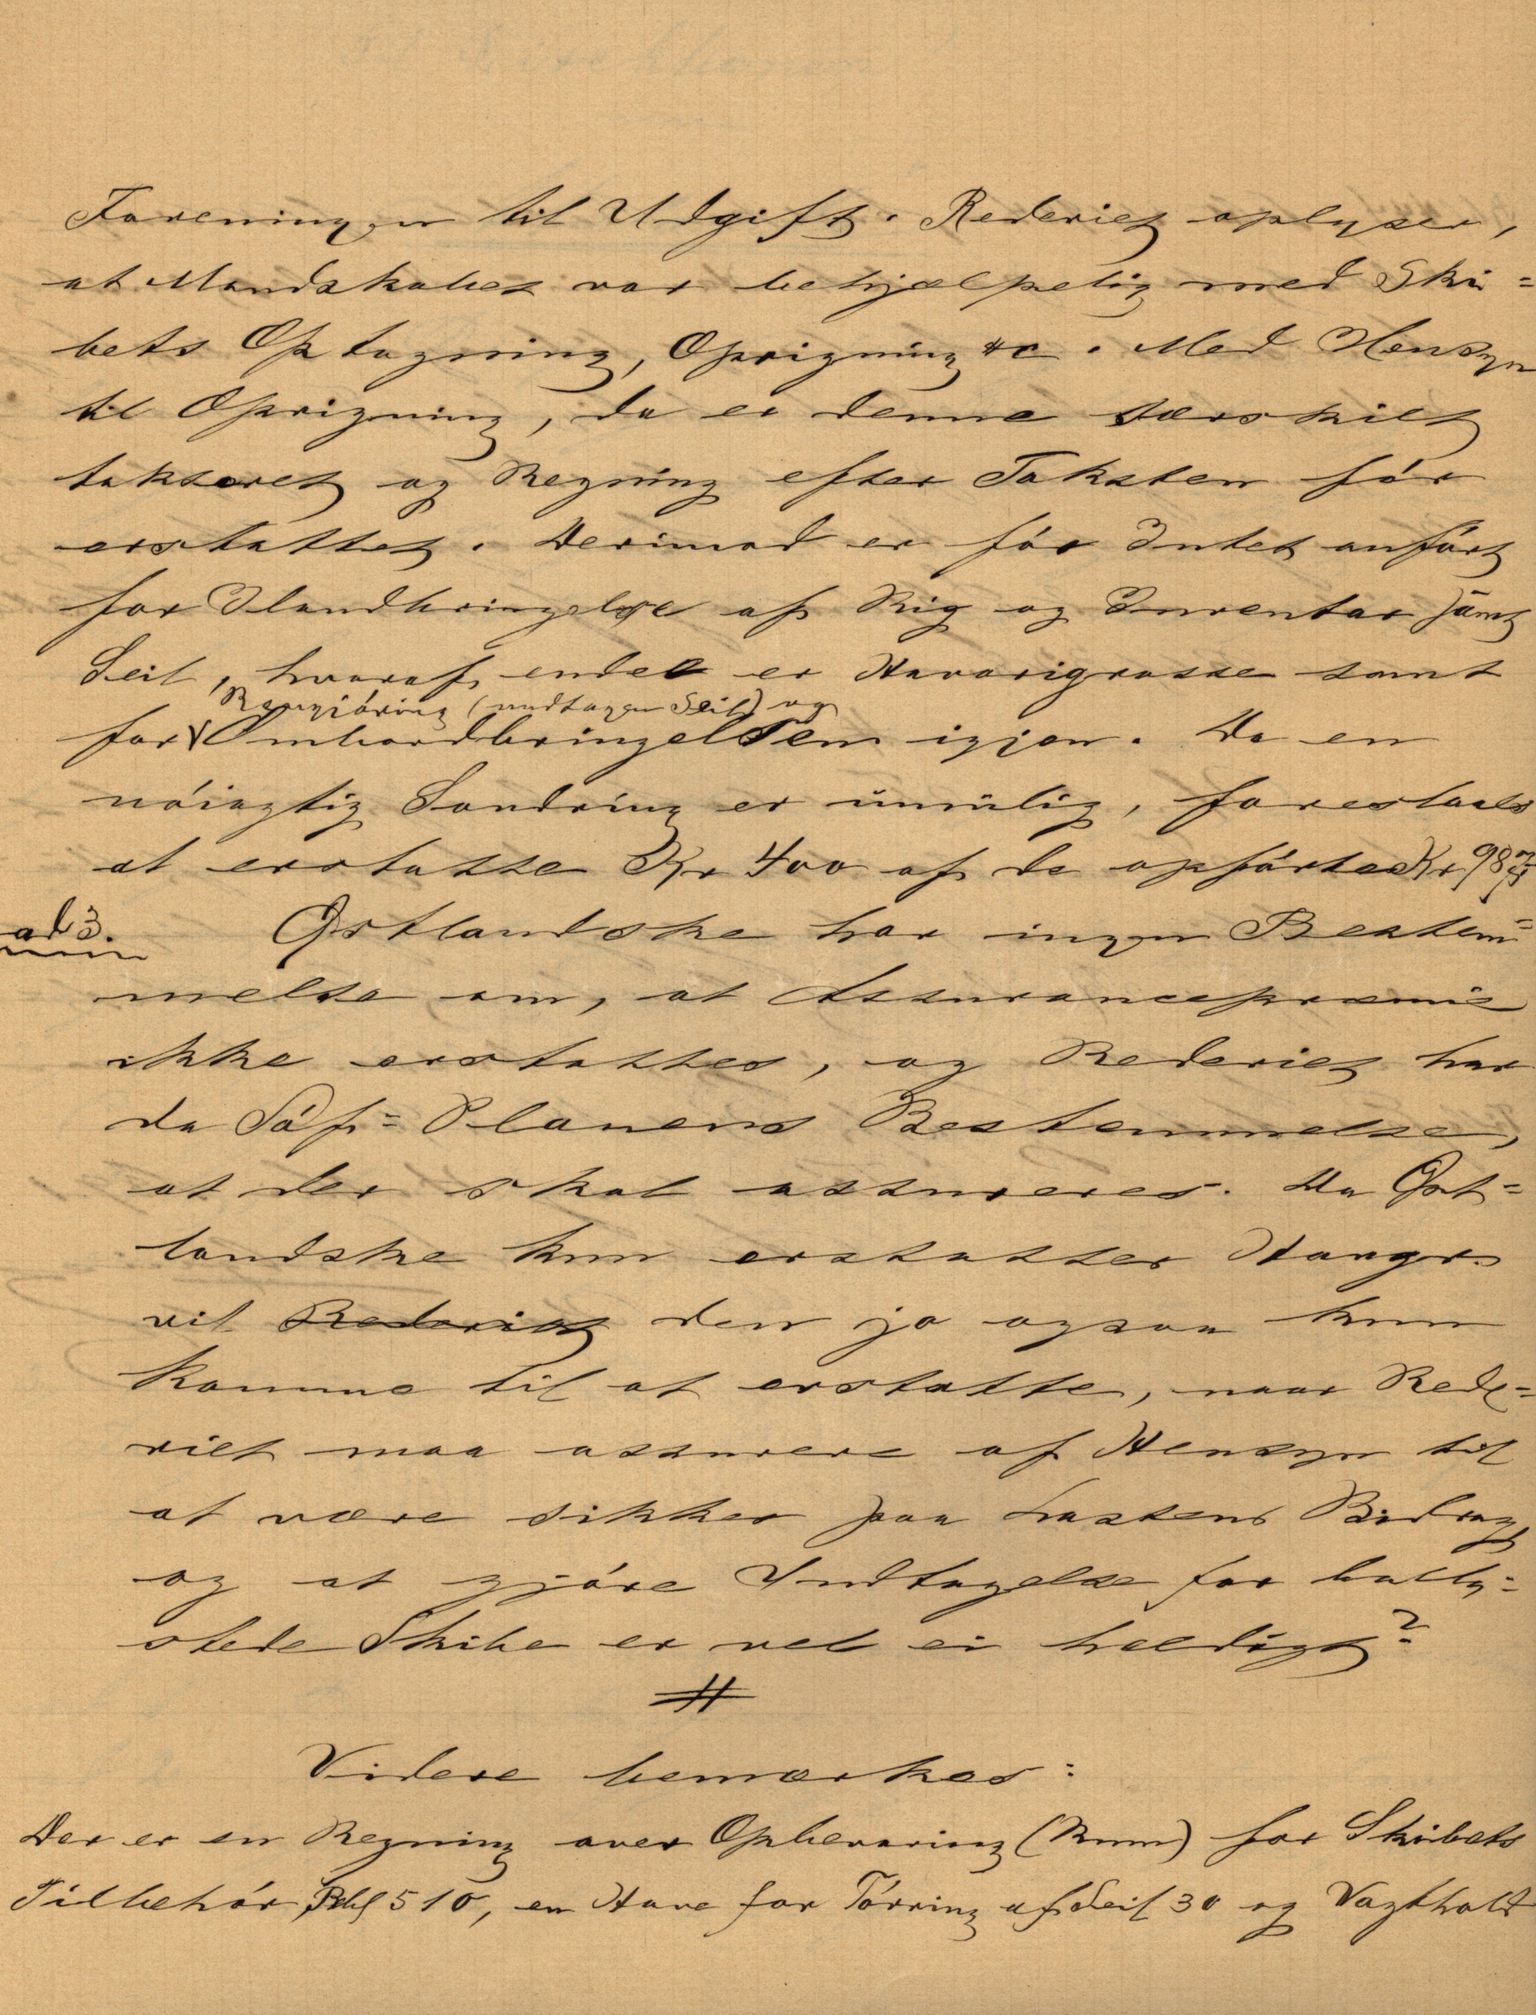 Foreningen til Udgift. Rederiet oplyser,
at Mandskabet var behjælpelig med Ski=
bets Optagning, Oprigning &c. Med Hensyn
til Oprigning, da er denne særskilt
takseret og Regning efter Taksten før
erstattet. Derimod er før Intet anført
for Ilandbringelse af Rig og Inventar samt
Seil, hvoraf endel er Havarigrosse samt
Rengjøring (undtagen Seil) og
for Ombordbringelsen igjen. Da en
nöiagtig Sondring er umulig, foreslaaes
at erstatte Kr 400 af de opførte Kr
ad 3. Østlandske har ingen Bestem=
melse om, at Assurancepræmie
ikke erstattes, og Rederiet har
da Søf=Planens Bestemmelse,
at der skal assureres. Da Øst=
landske kun erstatter Havgr.
vil Rederiet den jo ogsaa kun
komme til at erstatte, naar Rede=
riet maa assurere af Hensyn til
at være sikker paa Lastens Bidrag
og at gjøre Undtagelse for balla=
stede Skibe er vel ei heldigt?
Videre bemærkes:
Der er en Regning over Opbevaring (Rum) for Skibets
Tilbehør, Rbl 510, en Have for Tørring af Seil 30 og Vagthold